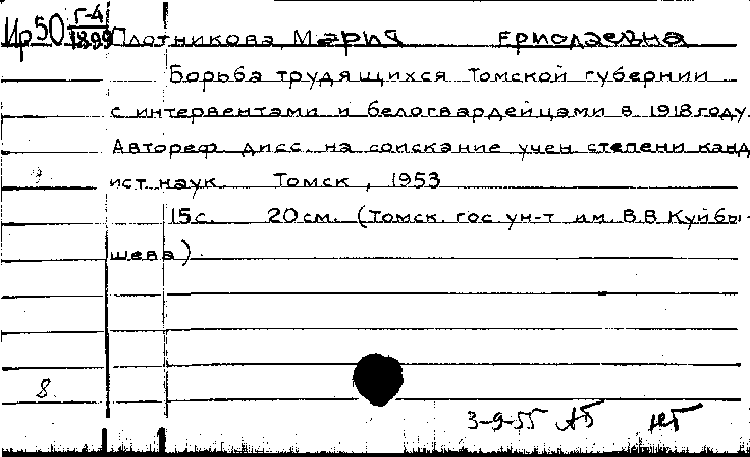 Ир50 Г-4/1899 Плотникова, Мария Ермолаевна
Борьба трудящихся Томской губернии
с интервентами и белогвардейцами в 1918 году.
Автореф. дисс. на соискание учен степени канд
ист наук. Томск, 1953
15 с. 20 см. (Томск. гос ун-т им. В.В Куйбы-
шева).
8
3-9-55